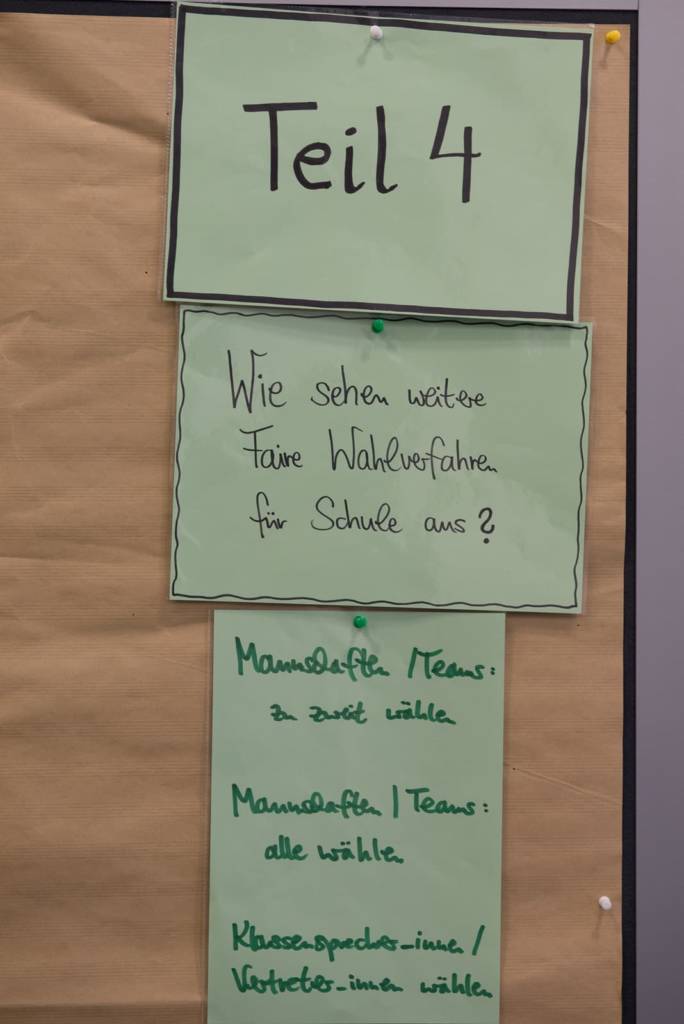 Teil 4
Wie sehen weitere
Faire Wahlverfahren
für Schule aus?
Mannschaften / Teams:
zu zweit wählen
Mannschaften / Teams:
alle wählen
Klassensprecher_innen /
Vertreter_innen wählen